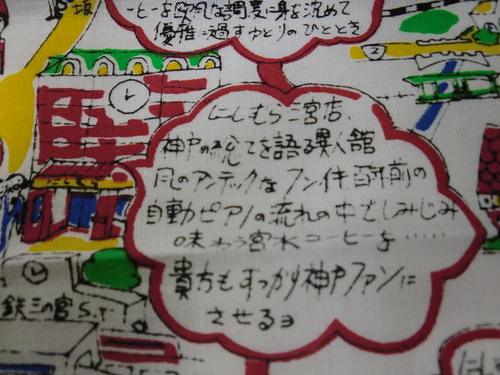 坂
ーヒーを欧風な調度に身を沈めて
優雅に過すゆとりのひととき
にしむら三宮店、
神戸の総てを語る異人館
風のアンテックな フンイキ 百年前の
自動ピアノの流れの中でしみじみ
味わう宮水コーヒーを……
貴方もすっかり神戸ファンに
させるヨ
鉄三の宮S.T
にし